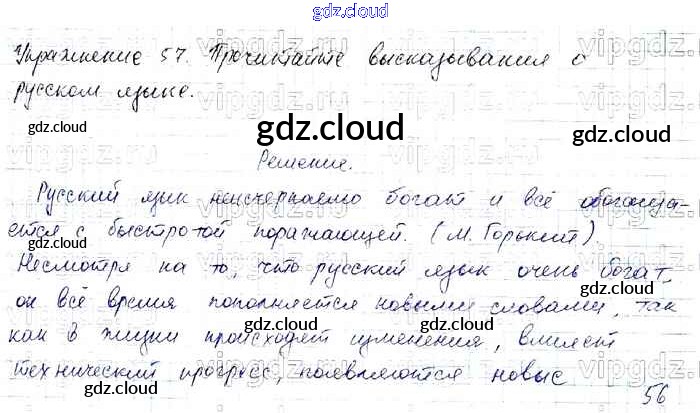 gdz.cloud
Упражнение 57. Прочитайте высказывания о
русском языке.
gdz.cloud
gdz.cloud
gdz.cloud
Решение.
Русский язык неисчерпаемо богат и всё обогаща-
ется с быстротой поражающей. (М. Горький)
gdz.cloud
gdz.cloud
Несмотря на то, что русский язык очень богат,
он всё время пополняется новыми словами, так
gdz.cloud
как в жизни происходят изменения, влияет
gdz.cloud
gdz.cloud
технический прогресс, появляются новые
56